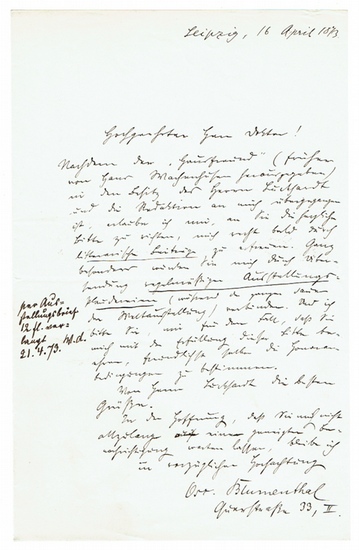 Leipzig, 16 April 1873
Hochgeehrter Herr Doktor!
Nachdem der „Hausfreund" (früher
von Hans Wachenhusen herausgegeben)
in den Besitz des Herrn Luckhardt
und die Redaktion an mich übergegangen
ist, erlaube ich mir, an Sie die herzliche
Bitte zu richten, mich recht bald durch
literarische Beiträge zu erfreuen. Ganz
besonders würden Sie mich durch Über-
sendung regelmäßiger Ausstellungs-
plaudereien (während der ganzen Dauer
der Weltausstellung) verbinden. Und ich
bitte Sie mir für den Fall, daß Sie
mich mit der Erfüllung dieser Bitte be-
ehren, freundlichst selbst die Honorar-
bedingungen zu bestimmen.
Von Herrn Luckhardt die besten
Grüße.
In der Hoffnung, daß Sie mich nicht
allzulange auf eine geneigte Be-
nachrichtigung warten lassen, bleibe ich
in vorzüglicher Hochachtung
Osc. Blumenthal
Querstraße 33, II.
per Aus-
stellungsbrief
12 fl. ver-
langt
21.4.73. W.d.